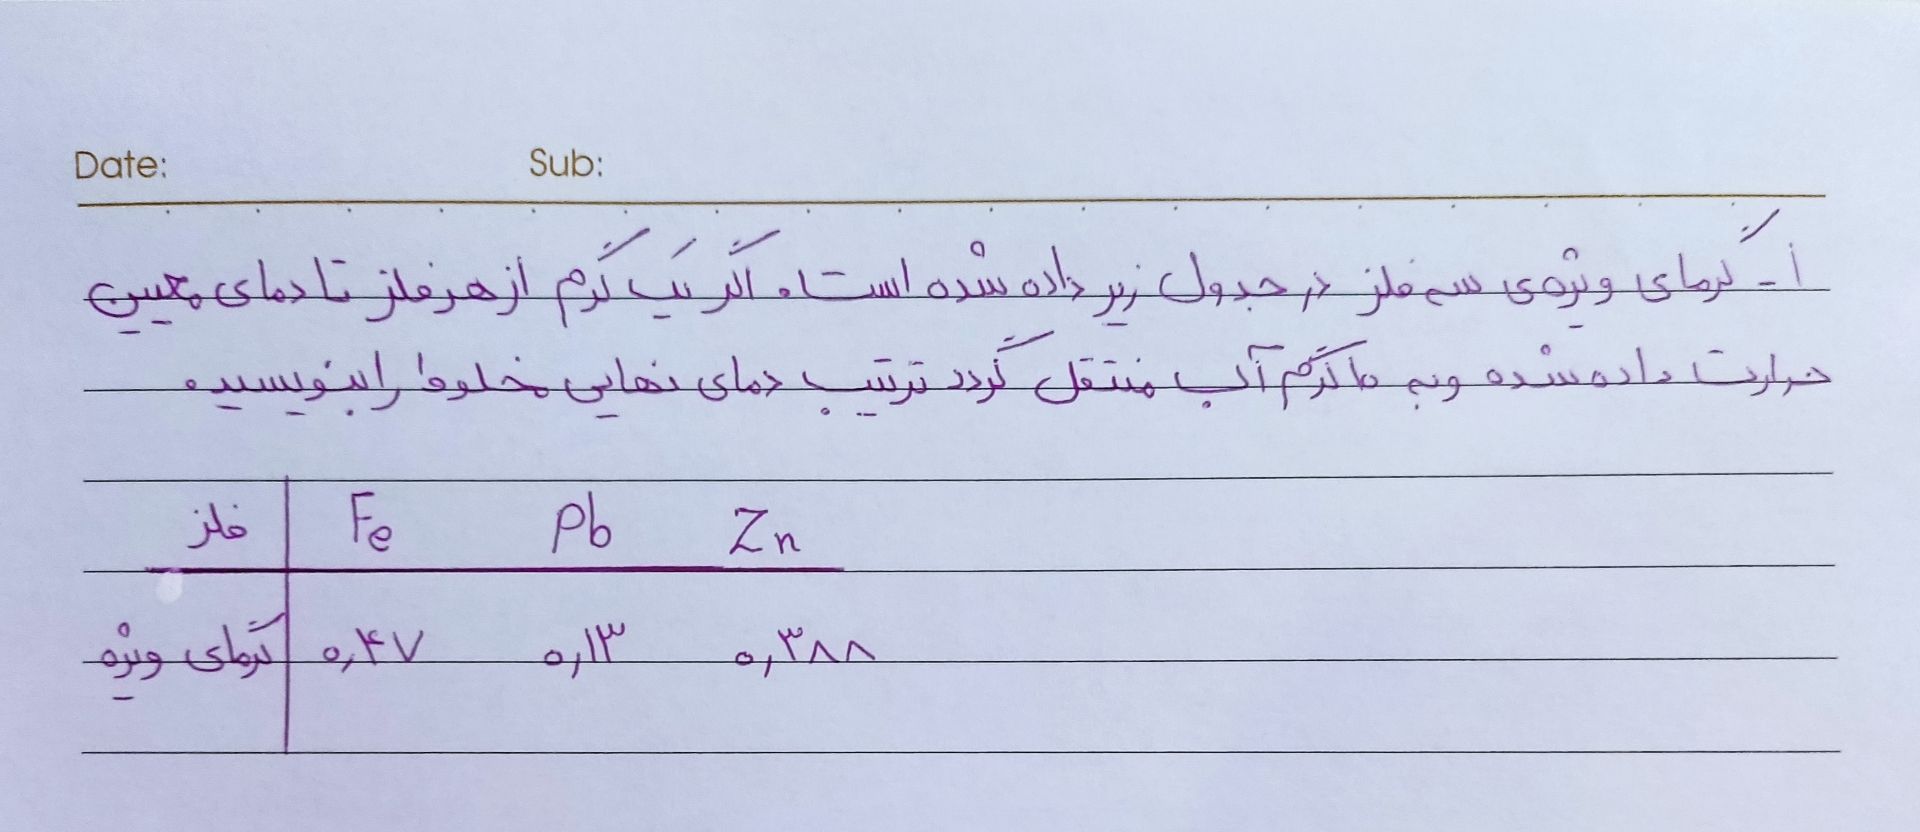 Date: Sub:
۱ - گرمای ویژه‌ی سه فلز در جدول زیر داده شده است. اگر یک گرم از هر فلز تا دمای معین
حرارت داده شده و به ۱۵ گرم آب منتقل گردد ترتیب دمای نهایی مخلوط را بنویسید.
فلز Fe Pb Zn
گرمای ویژه ۰,۴۷ ۰,۱۳ ۰,۳۸۸